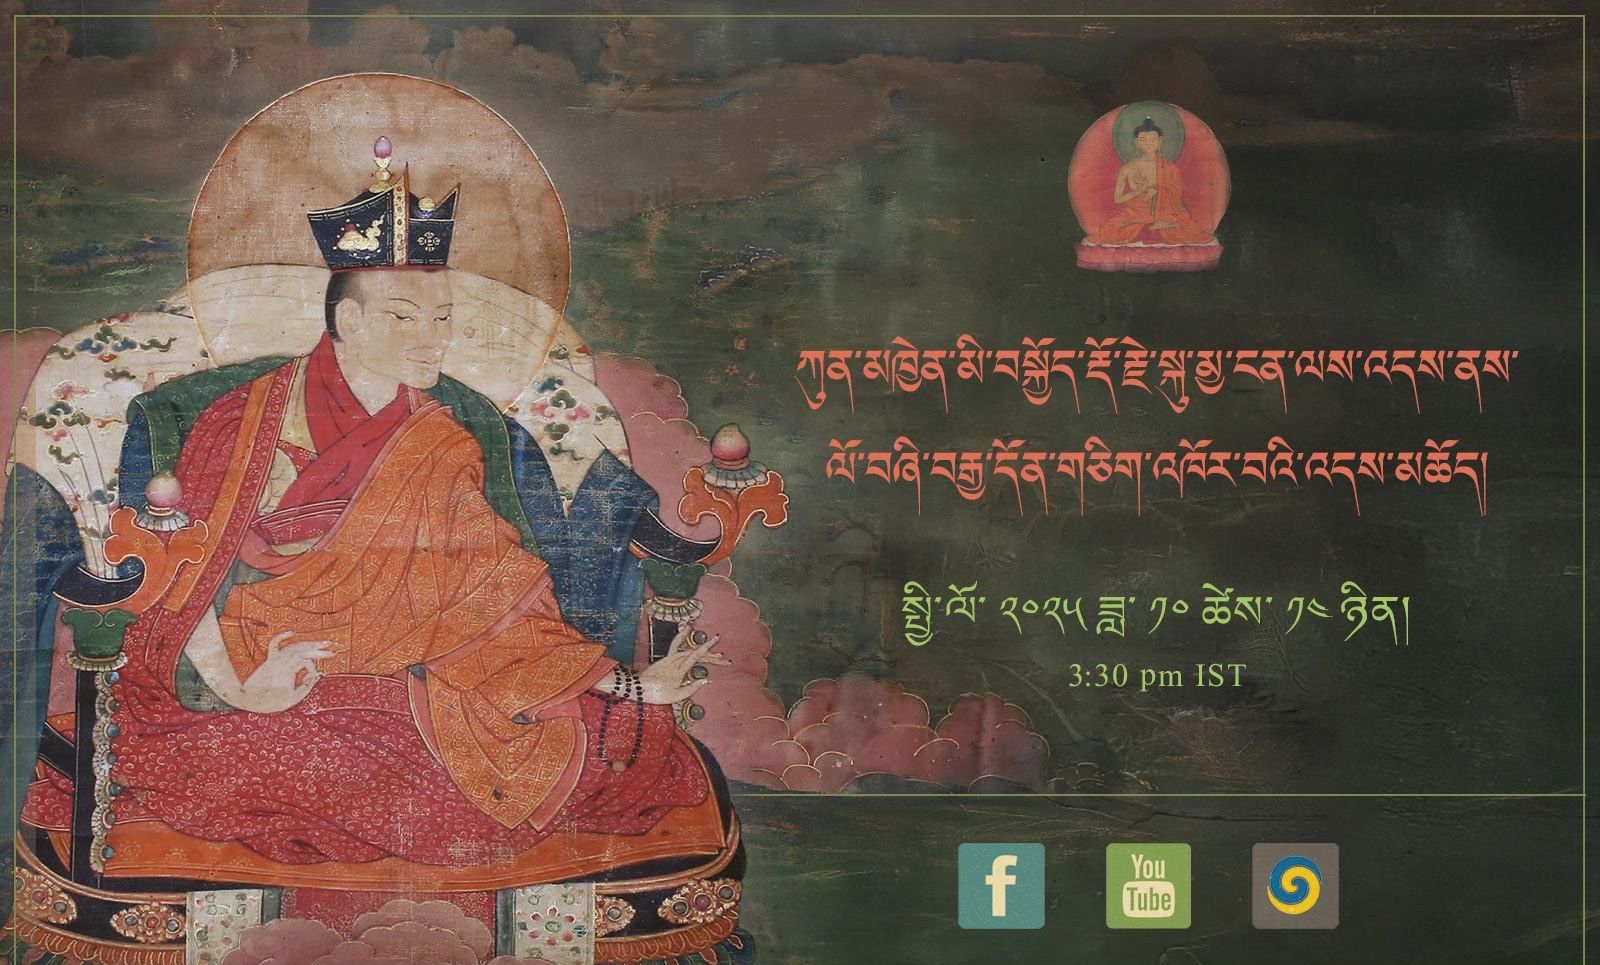 ཀུན་མཁྱེན་མི་བསྐྱོད་རྡོ་རྗེ་སྐུ་མྱ་ངན་ལས་འདས་ནས་
ལོ་བཞི་བརྒྱ་དོན་གཅིག་འཁོར་བའི་འདས་མཆོད།
སྤྱི་ལོ་ ༢༠༢༥ ཟླ་ ༡༠ ཚེས་ ༡༤ ཉིན།
3:30 pm IST
f
You
Tube